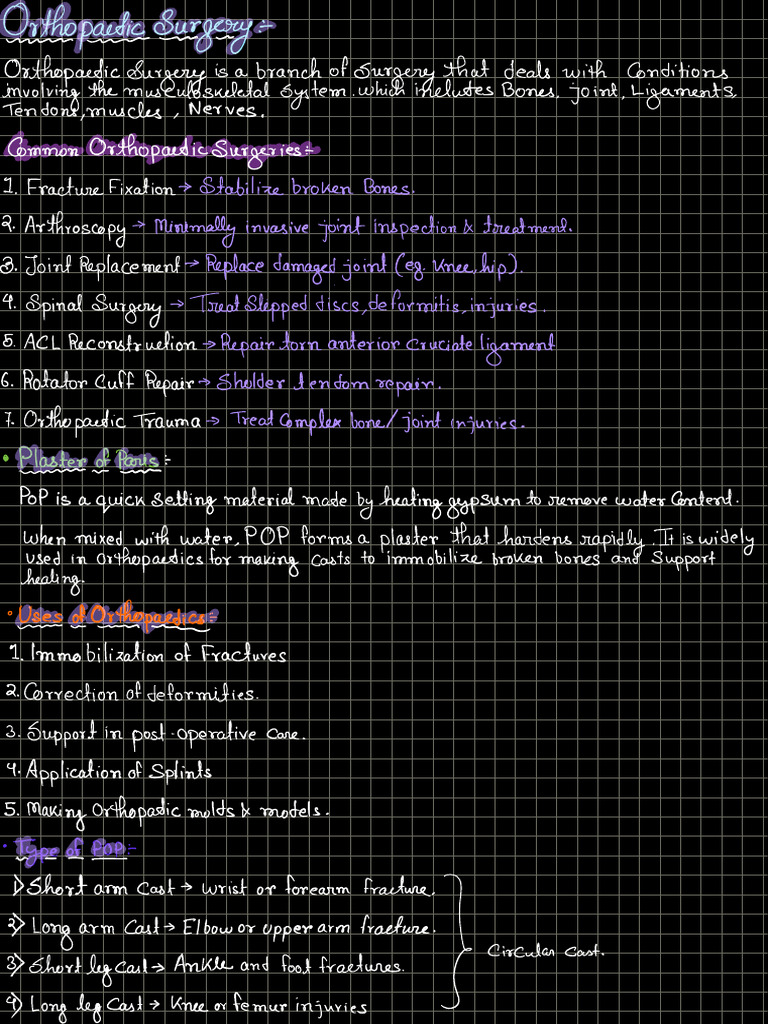 Orthopaedic Surgery:-
Orthopaedic Surgery is a branch of Surgery that deals with Conditions
involving the musculoskeletal System. which includes Bones, joint, Ligaments,
Tendons, muscles, Nerves.
Common Orthopaedic Surgeries:-
1. Fracture Fixation → Stabilize broken Bones.
2. Arthroscopy → Minimally invasive joint inspection & treatment.
3. Joint Replacement → Replace damaged joint (eg. Knee, hip).
4. Spinal Surgery → Treat Slepped discs, deformitis, injuries.
5. ACL Reconstruction → Repair torn anterior cruciate ligament
6. Rotator Cuff Repair → Sholder tendom repair.
7. Orthopaedic Trauma → Treat Complex bone/joint injuries.
• Plaster of Paris:-
PoP is a quick setting material made by heating gypsum to remove water Content.
when mixed with water, POP forms a plaster that hardens rapidly. It is widely
used in orthopaedics for making casts to immobilize broken bones and Support
healing.
• Uses of Orthopaedics:-
1. Immobilization of Fractures
2. Correction of deformities.
3. Support in post-operative Care.
4. Application of Splints
5. Making Orthopadic molds & models.
• Type of POP:-
1) Short arm Cast → wrist or forearm fracture.
2) Long arm Cast → Elbow or upper arm fracture.
Circular Cast.
3) Short leg Cast → Ankle and foot fractures.
4) Long leg Cast → Knee or femur injuries